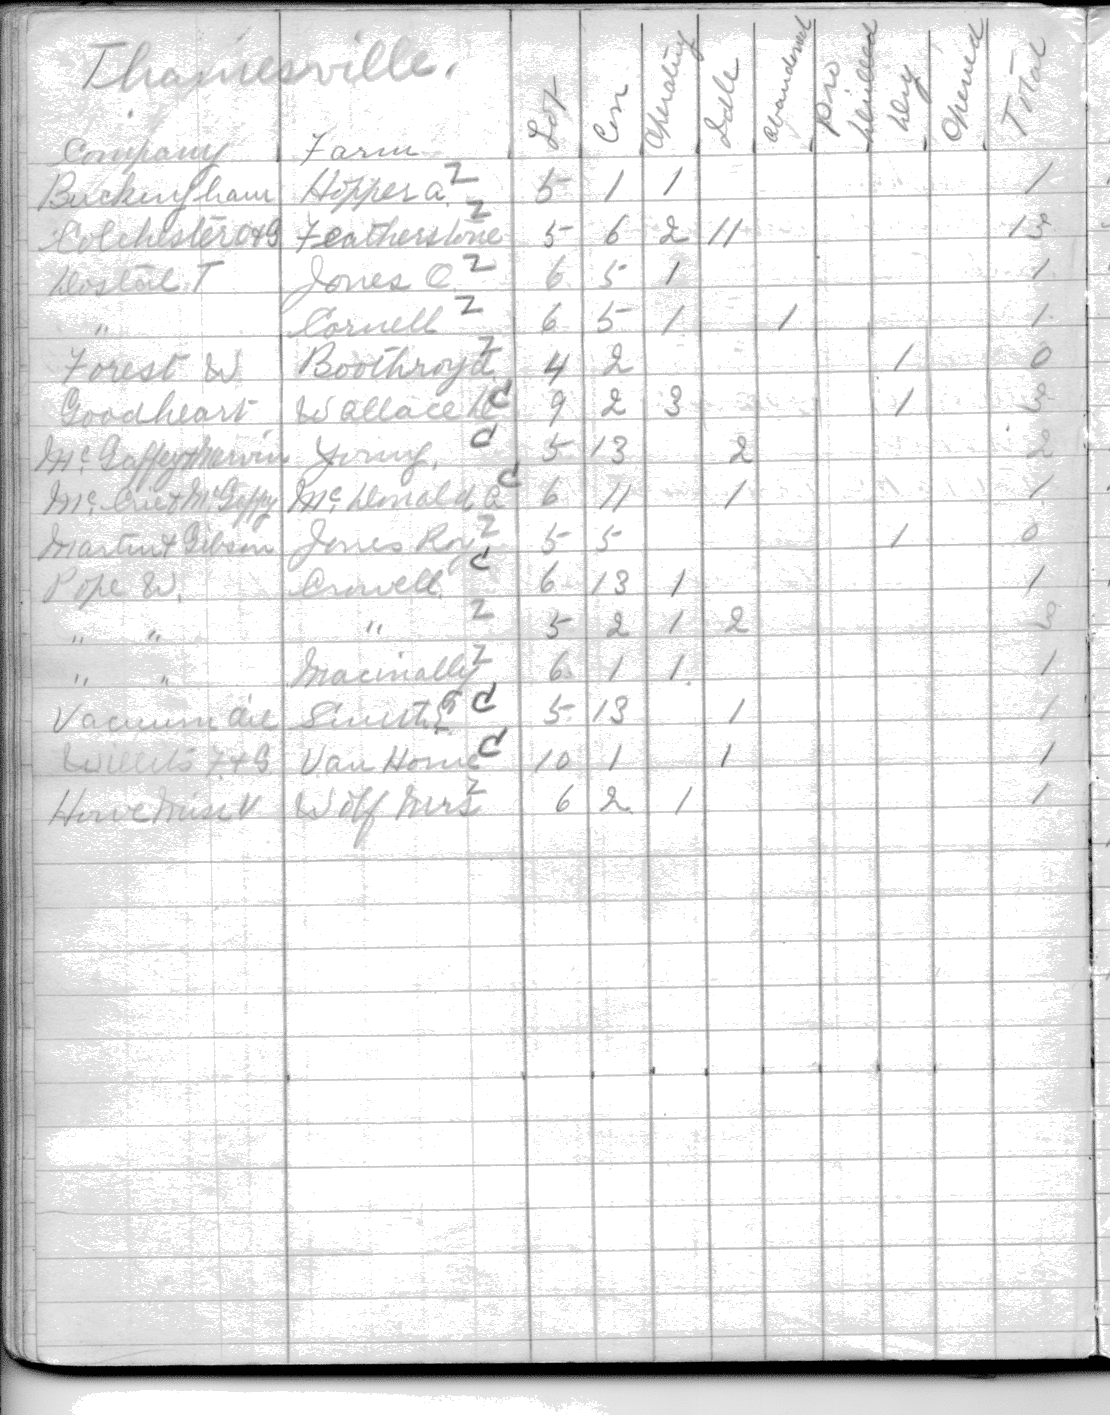 Thamesville.
Company Farm Lot Con Operating Idle Abandoned Pro Drilled Dry Opened Total
Buckingham Hopper A. Z 5 1 1 1
Colchester O+G Featherstone Z 5 6 2 11 13
Dostal. T Jones O. Z 6 5 1 1
" Cornell Z 6 5 1 1 1
Forest W Boothroyd Z 4 2 1 0
Goodheart Wallace C 9 2 3 1 3
Mc. Gaffey & Marvin Young. C 5 13 2 2
Mc. & McGaffy Mc. Donald A C 6 11 1 1
Martin & Gibson Jones Roy Z 5 5 1 0
Pope W. Crowell C 6 13 1 1
" " " Z 5 2 1 2 3
" " Macinally Z 6 1 1 1
Vacuum Oil Smith C 5 13 1 1
Willits F+G Van Horne C 10 1 1 1
Howe Wolf Mrs Z 6 2 1 1